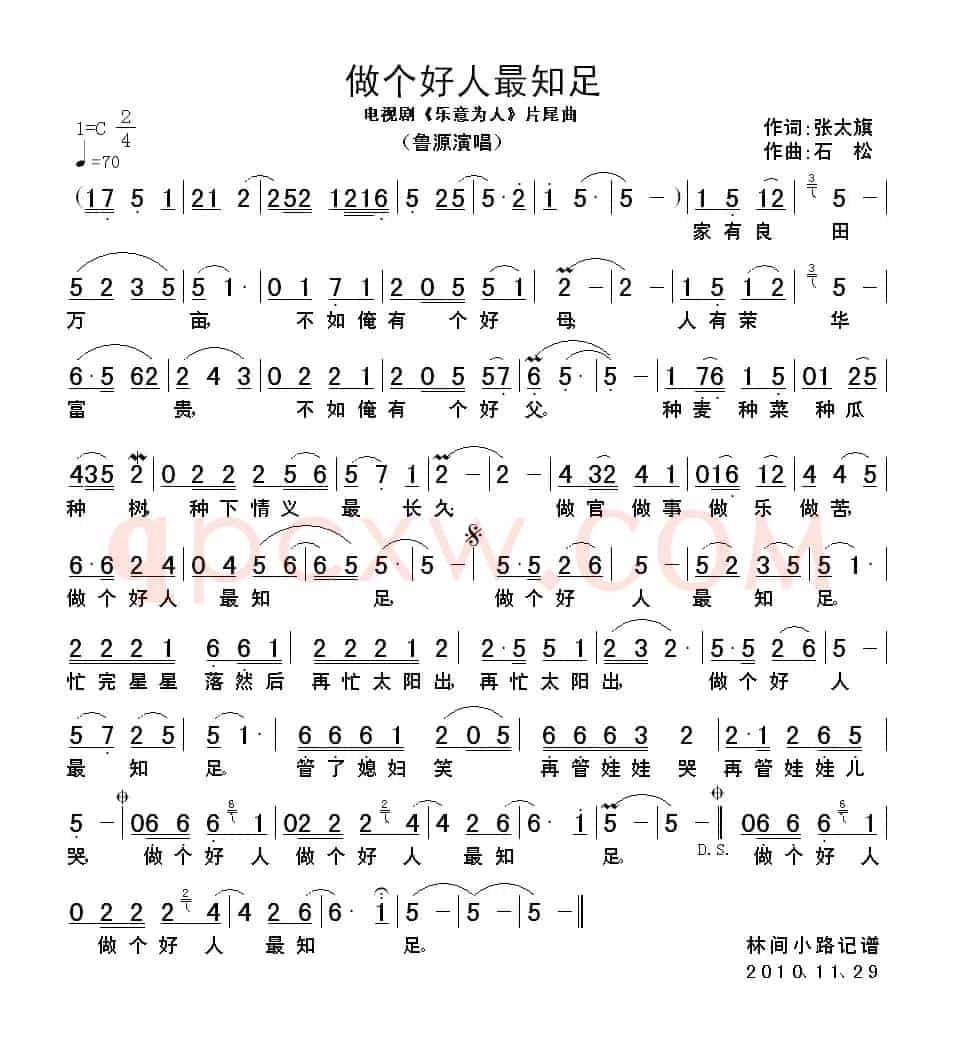 做个好人最知足
电视剧《乐意为人》片尾曲
(鲁源演唱)
1=C 2/4
♩=70
作词:张太旗
作曲:石 松
(17 5 1|21 2|252 1216|5 25|5·2|i 5·|5 -)|1 5 12|3 5 -|
家有良 田
5 2 3 5|5 1·|0 1 7 1|2 0 5 5 1|2 -|2 -|1 5 1 2|3 5 -|
万 亩, 不如俺有 个好 母; 人有荣 华
6·5 62|2 4 3|0 2 2 1|2 0 5 57|6 5·|5 -|1 76 1 5|01 25|
富 贵, 不如俺有 个好 父。 种麦种菜 种瓜
435 2|0 2 2 2 5 6|5 7 1|2 -|2 -|4 32 4 1|016 12|4 4 5|
种 树, 种下情义 最 长久; 做官做事 做 乐 做苦,
6·6 2 4|0 4 5 6 6 5|5·5 -|5·5 2 6|5 -|5 2 3 5|5 1·|
做个好人 最知 足, 做个好 人 最 知 足。
2 2 2 1 6 6 1|2 2 2 2·5|2 2 2 2·5|5·5 2 6|5 -|
忙完星星 落然后 再忙太阳出, 再忙太阳出, 做个好 人
5 7 2 5|5 1·|6 6 6 6 2 0 5|6 6 6 6 3 2|2·1 2 6 5|
最 知 足。 管了媳妇 笑 再管娃娃 哭 再管娃娃儿
5 -|06 6 6 6 1|02 2 2 2 4|4 2 6|6· i|5 -|5 -‖06 6 6 6 1|
哭, 做个好人 做个好人 最知 足。 D.S. 做个好人
0 2 2 2 2 4|4 2 6|6· i|5 -|5 -|5 -‖
做个好人 最知 足。
林间小路记谱
2010.11.29
qpcxw.com